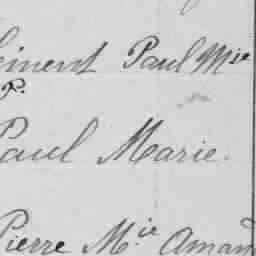 Paul Mie
P.
Paul Marie.
Pierre M.ie Aman